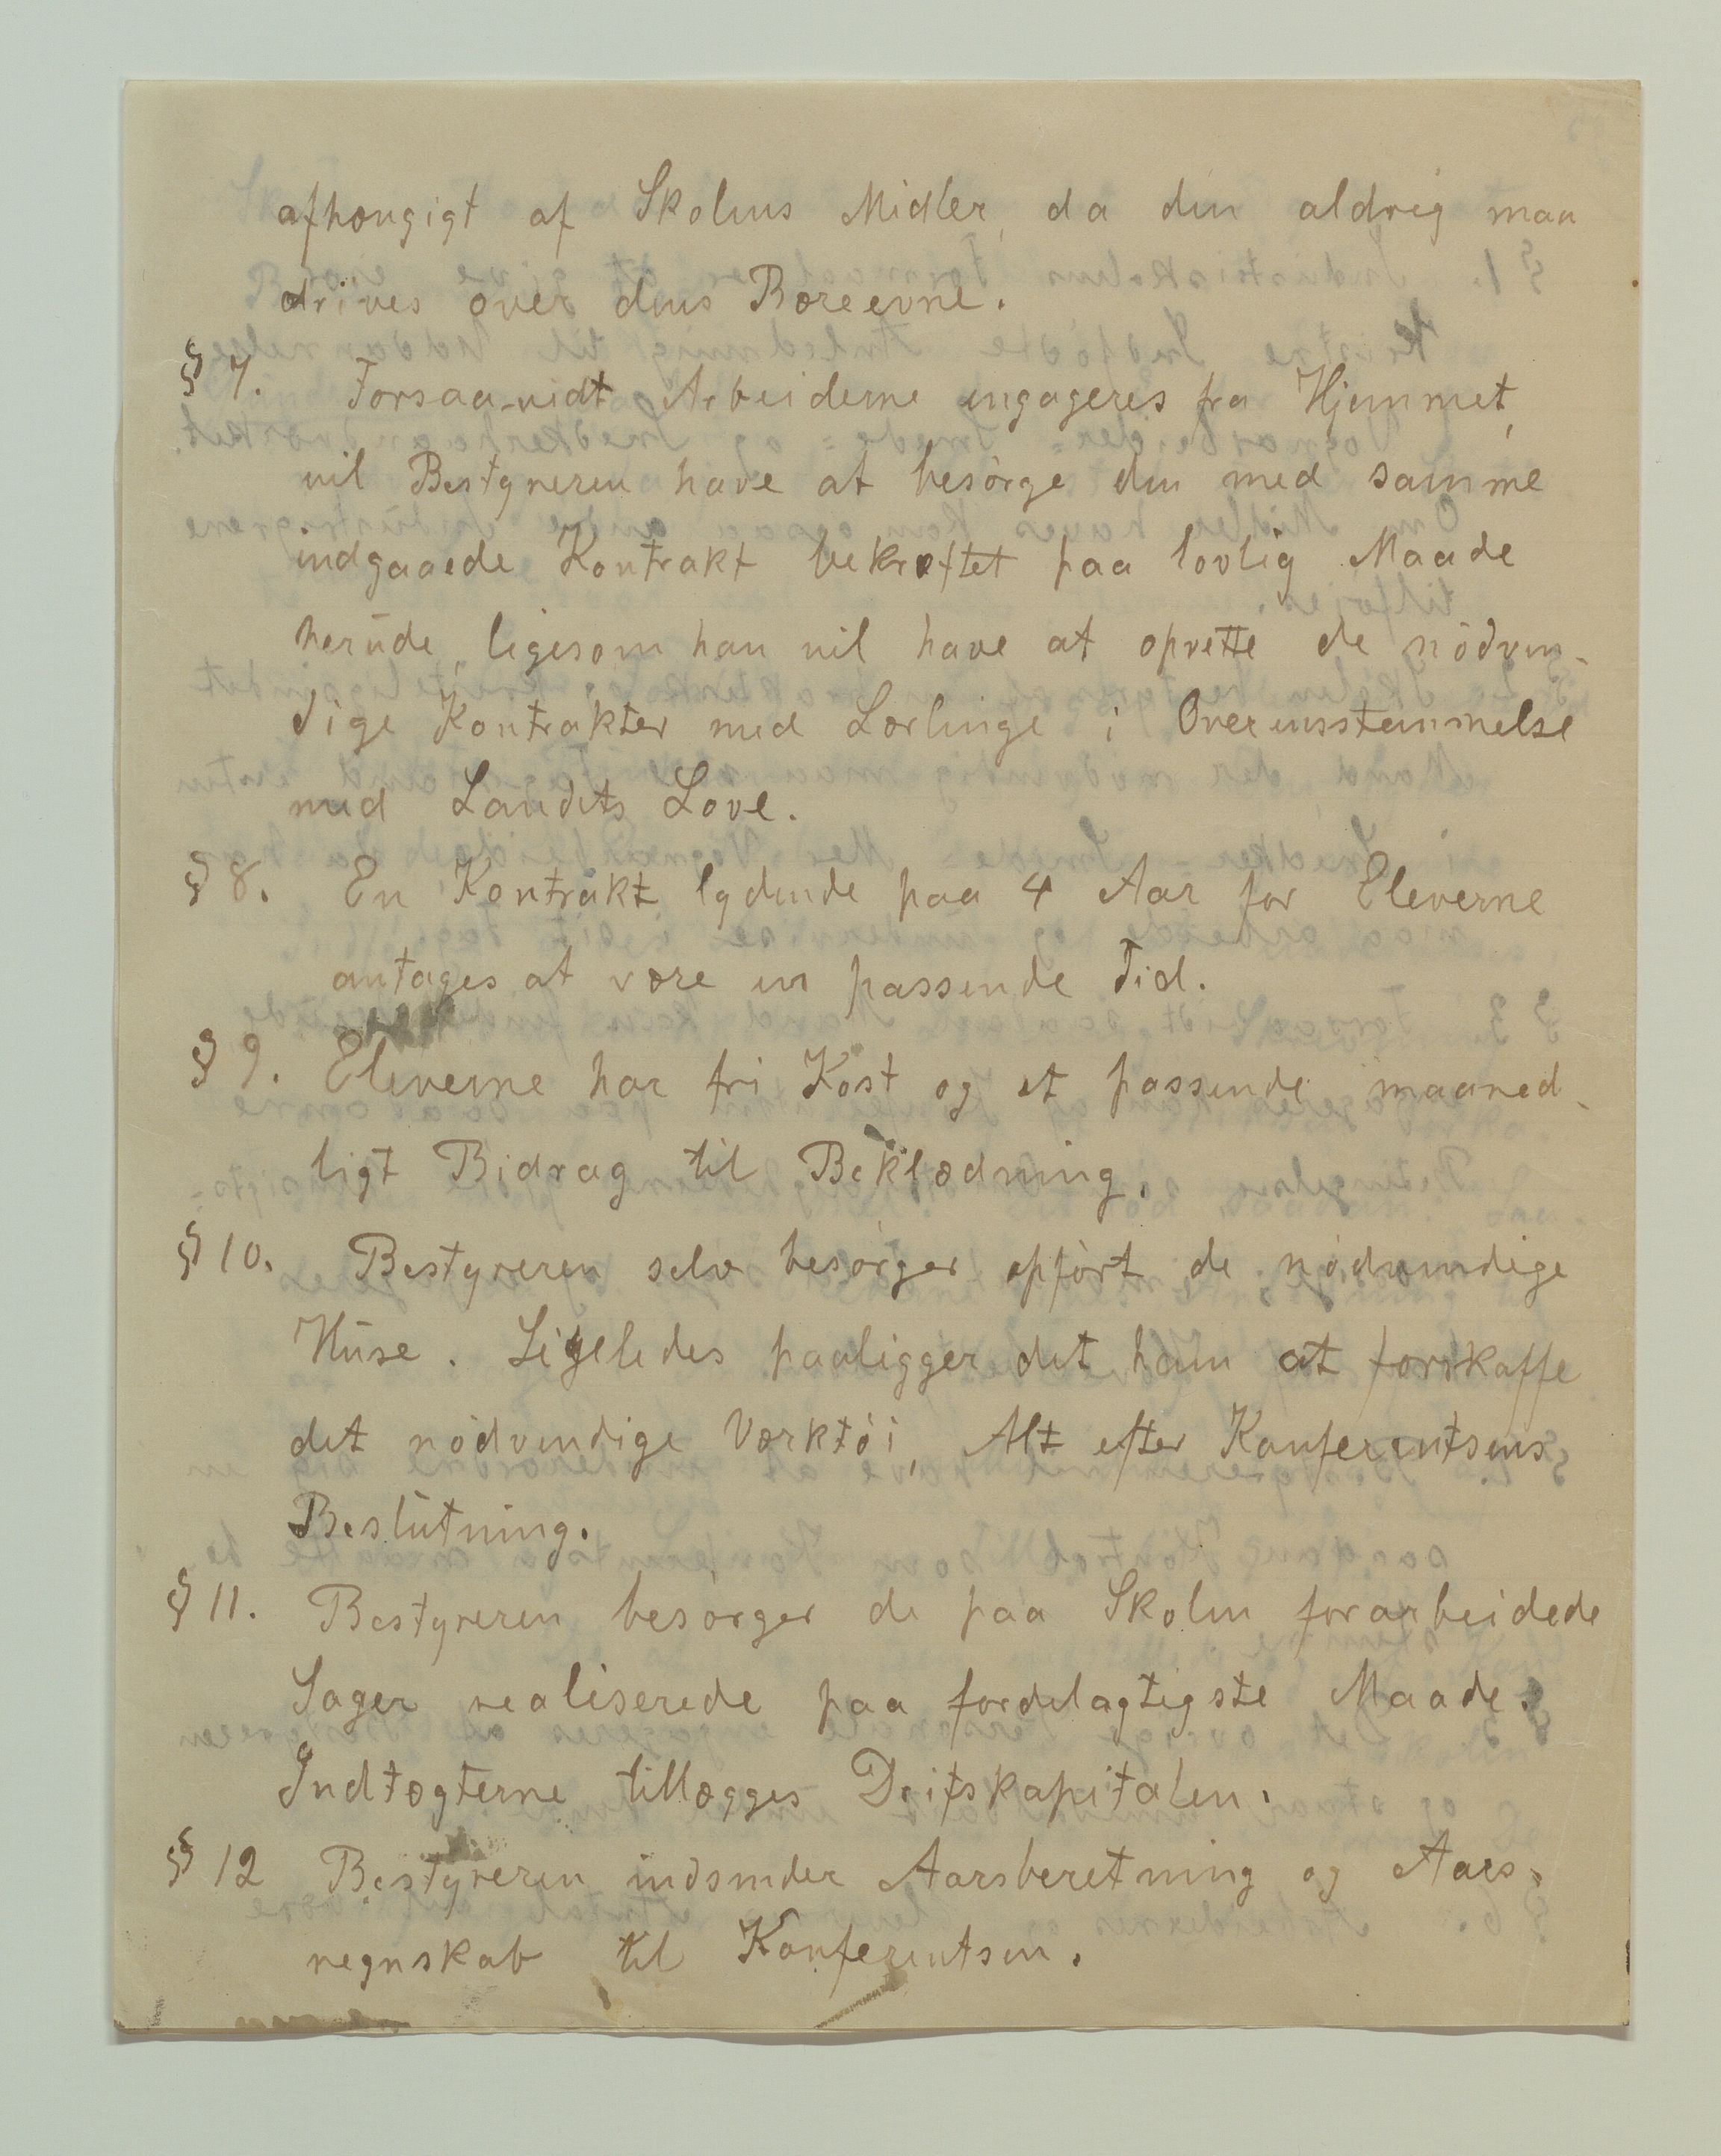 afhængigt af Skolens Midler, da den aldrig maa
drives over dens Bæreevne.
§ 7. Forsaavidt Arbeiderne engageres fra Hjemmet,
vil Bestyreren have at besørge den med samme
indgaaede Kontrakt bekræftet paa lovlig Maade
herude, ligesom han vil have at oprette de nødven-
dige Kontrakter med Lærlinge i Overensstemmelse
med Landets Love.
§ 8. En Kontrakt lydende paa 4 Aar for Eleverne
antages at være en passende Tid.
§ 9. Eleverne har fri Kost og et passende maaned-
ligt Bidrag til Beklædning.
§ 10. Bestyreren selv besørger opført de nødvendige
Huse. Ligeledes paaligger det ham at forskaffe
det nødvendige Værktøi, Alt efter Konferentsens
Beslutning.
§ 11. Bestyreren besørger de paa Skolen forarbeidede
Sager realiserede paa fordelagtigste Maade.
Indtægterne tillægges Driftskapitalen.
§ 12 Bestyreren indsender Aarsberetning og Aars-
regnskab til Konferentsen.